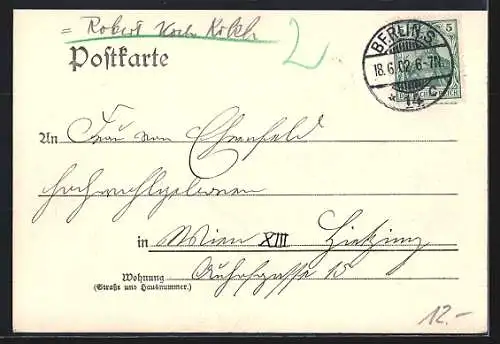 = Robert Koch
Postkarte
5
BERLIN.S.
18.6.02.6-7N.
* 14 c
REICH
An Frau von Ehrenfels
hochwohlgeboren
in Wien XIII Hietzing
Wohnung 15
(Straße und Hausnummer.)
12.-